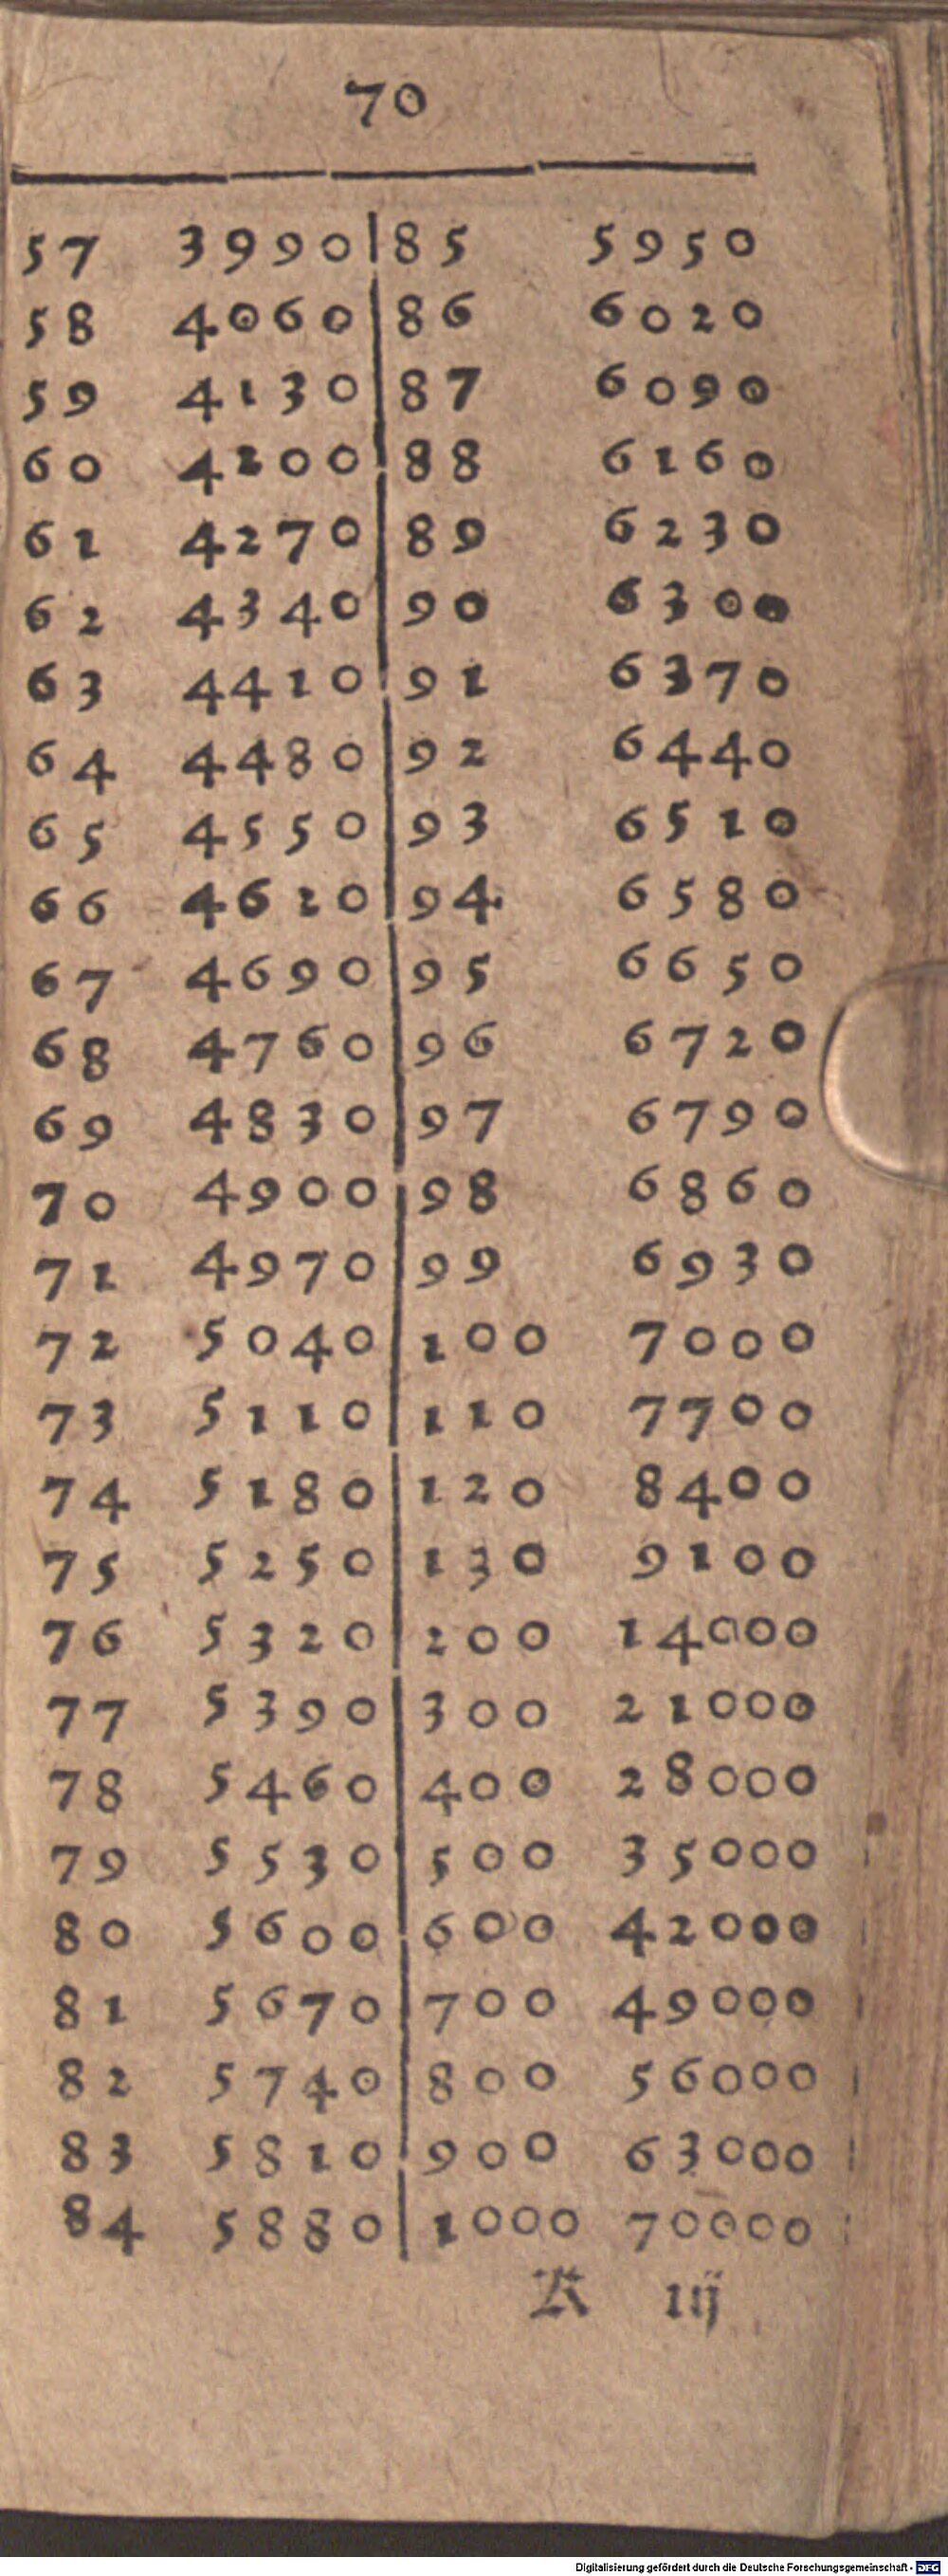 70
57 3990 | 85 5950
58 4060 | 86 6020
59 4130 | 87 6090
60 4200 | 88 6160
61 4270 | 89 6230
62 4340 | 90 6300
63 4410 | 91 6370
64 4480 | 92 6440
65 4550 | 93 6510
66 4620 | 94 6580
67 4690 | 95 6650
68 4760 | 96 6720
69 4830 | 97 6790
70 4900 | 98 6860
71 4970 | 99 6930
72 5040 | 100 7000
73 5110 | 110 7700
74 5180 | 120 8400
75 5250 | 130 9100
76 5320 | 200 14000
77 5390 | 300 21000
78 5460 | 400 28000
79 5530 | 500 35000
80 5600 | 600 42000
81 5670 | 700 49000
82 5740 | 800 56000
83 5810 | 900 63000
84 5880 | 1000 70000
K iij
Digitalisierung gefördert durch die Deutsche Forschungsgemeinschaft - DFG